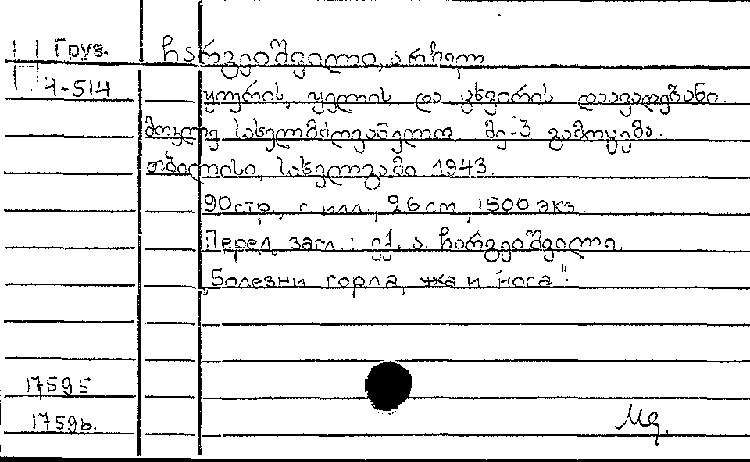 Груз. ჩარგეიშვილი, არჩილ
4-514 ყურის, ყელის და ცხვირის დაავადებანი.
მოკლე სახელმძღვანელო მე-3 გამოცემა.
თბილისი, სახელგამი 1943.
90 стр., с илл., 26 cm, 1500 экз
Перед загл.: ექ. ა. ჩარგეიშვილი
„Болезни горла, уха и носа".
1759б
1759b.